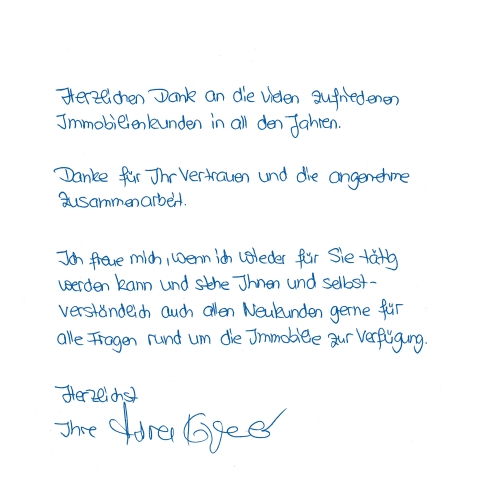 Herzlichen Dank an die vielen zufriedenen
Immobilienkunden in all den Jahren.
Danke für Ihr Vertrauen und die angenehme
Zusammenarbeit.
Ich freue mich, wenn ich wieder für Sie tätig
werden kann und stehe Ihnen und selbst-
verständlich auch allen Neukunden gerne für
alle Fragen rund um die Immobilie zur Verfügung.
Herzlichst
Ihre